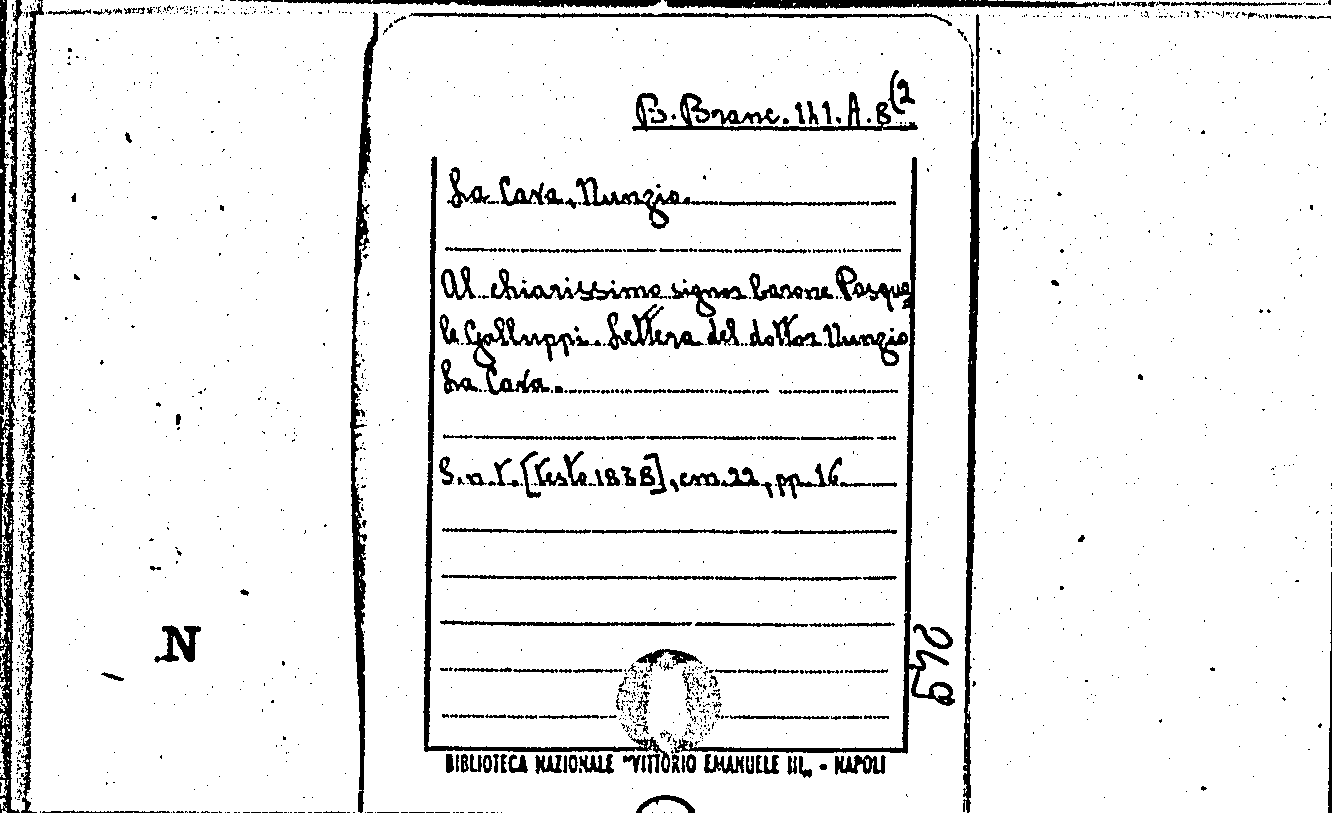 B. Branc. 141. A. 8 (2
La Cava, Nunzio.
Al chiarissimo signor barone Pasqua
le Galluppi. Lettera del dottor Nunzio
La Cava.
S. n. t. [testo 1838], cm. 22, pp. 16
570
N
BIBLIOTECA NAZIONALE "VITTORIO EMANUELE III„ - NAPOLI